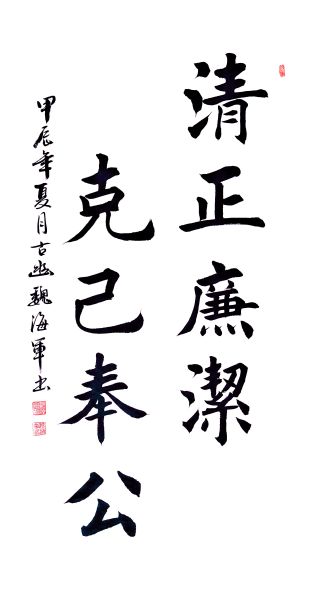 清正廉潔
克己奉公
甲辰年夏月古幽魏海軍书